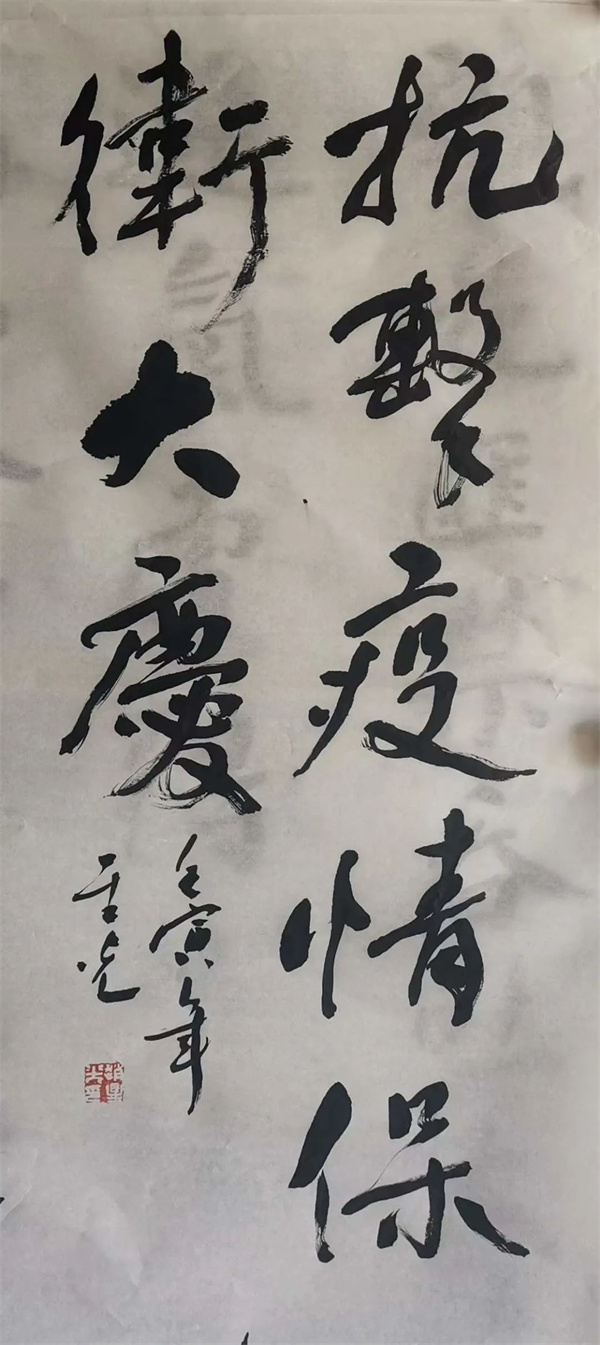 抗擊疫情保
衛大慶
壬寅年